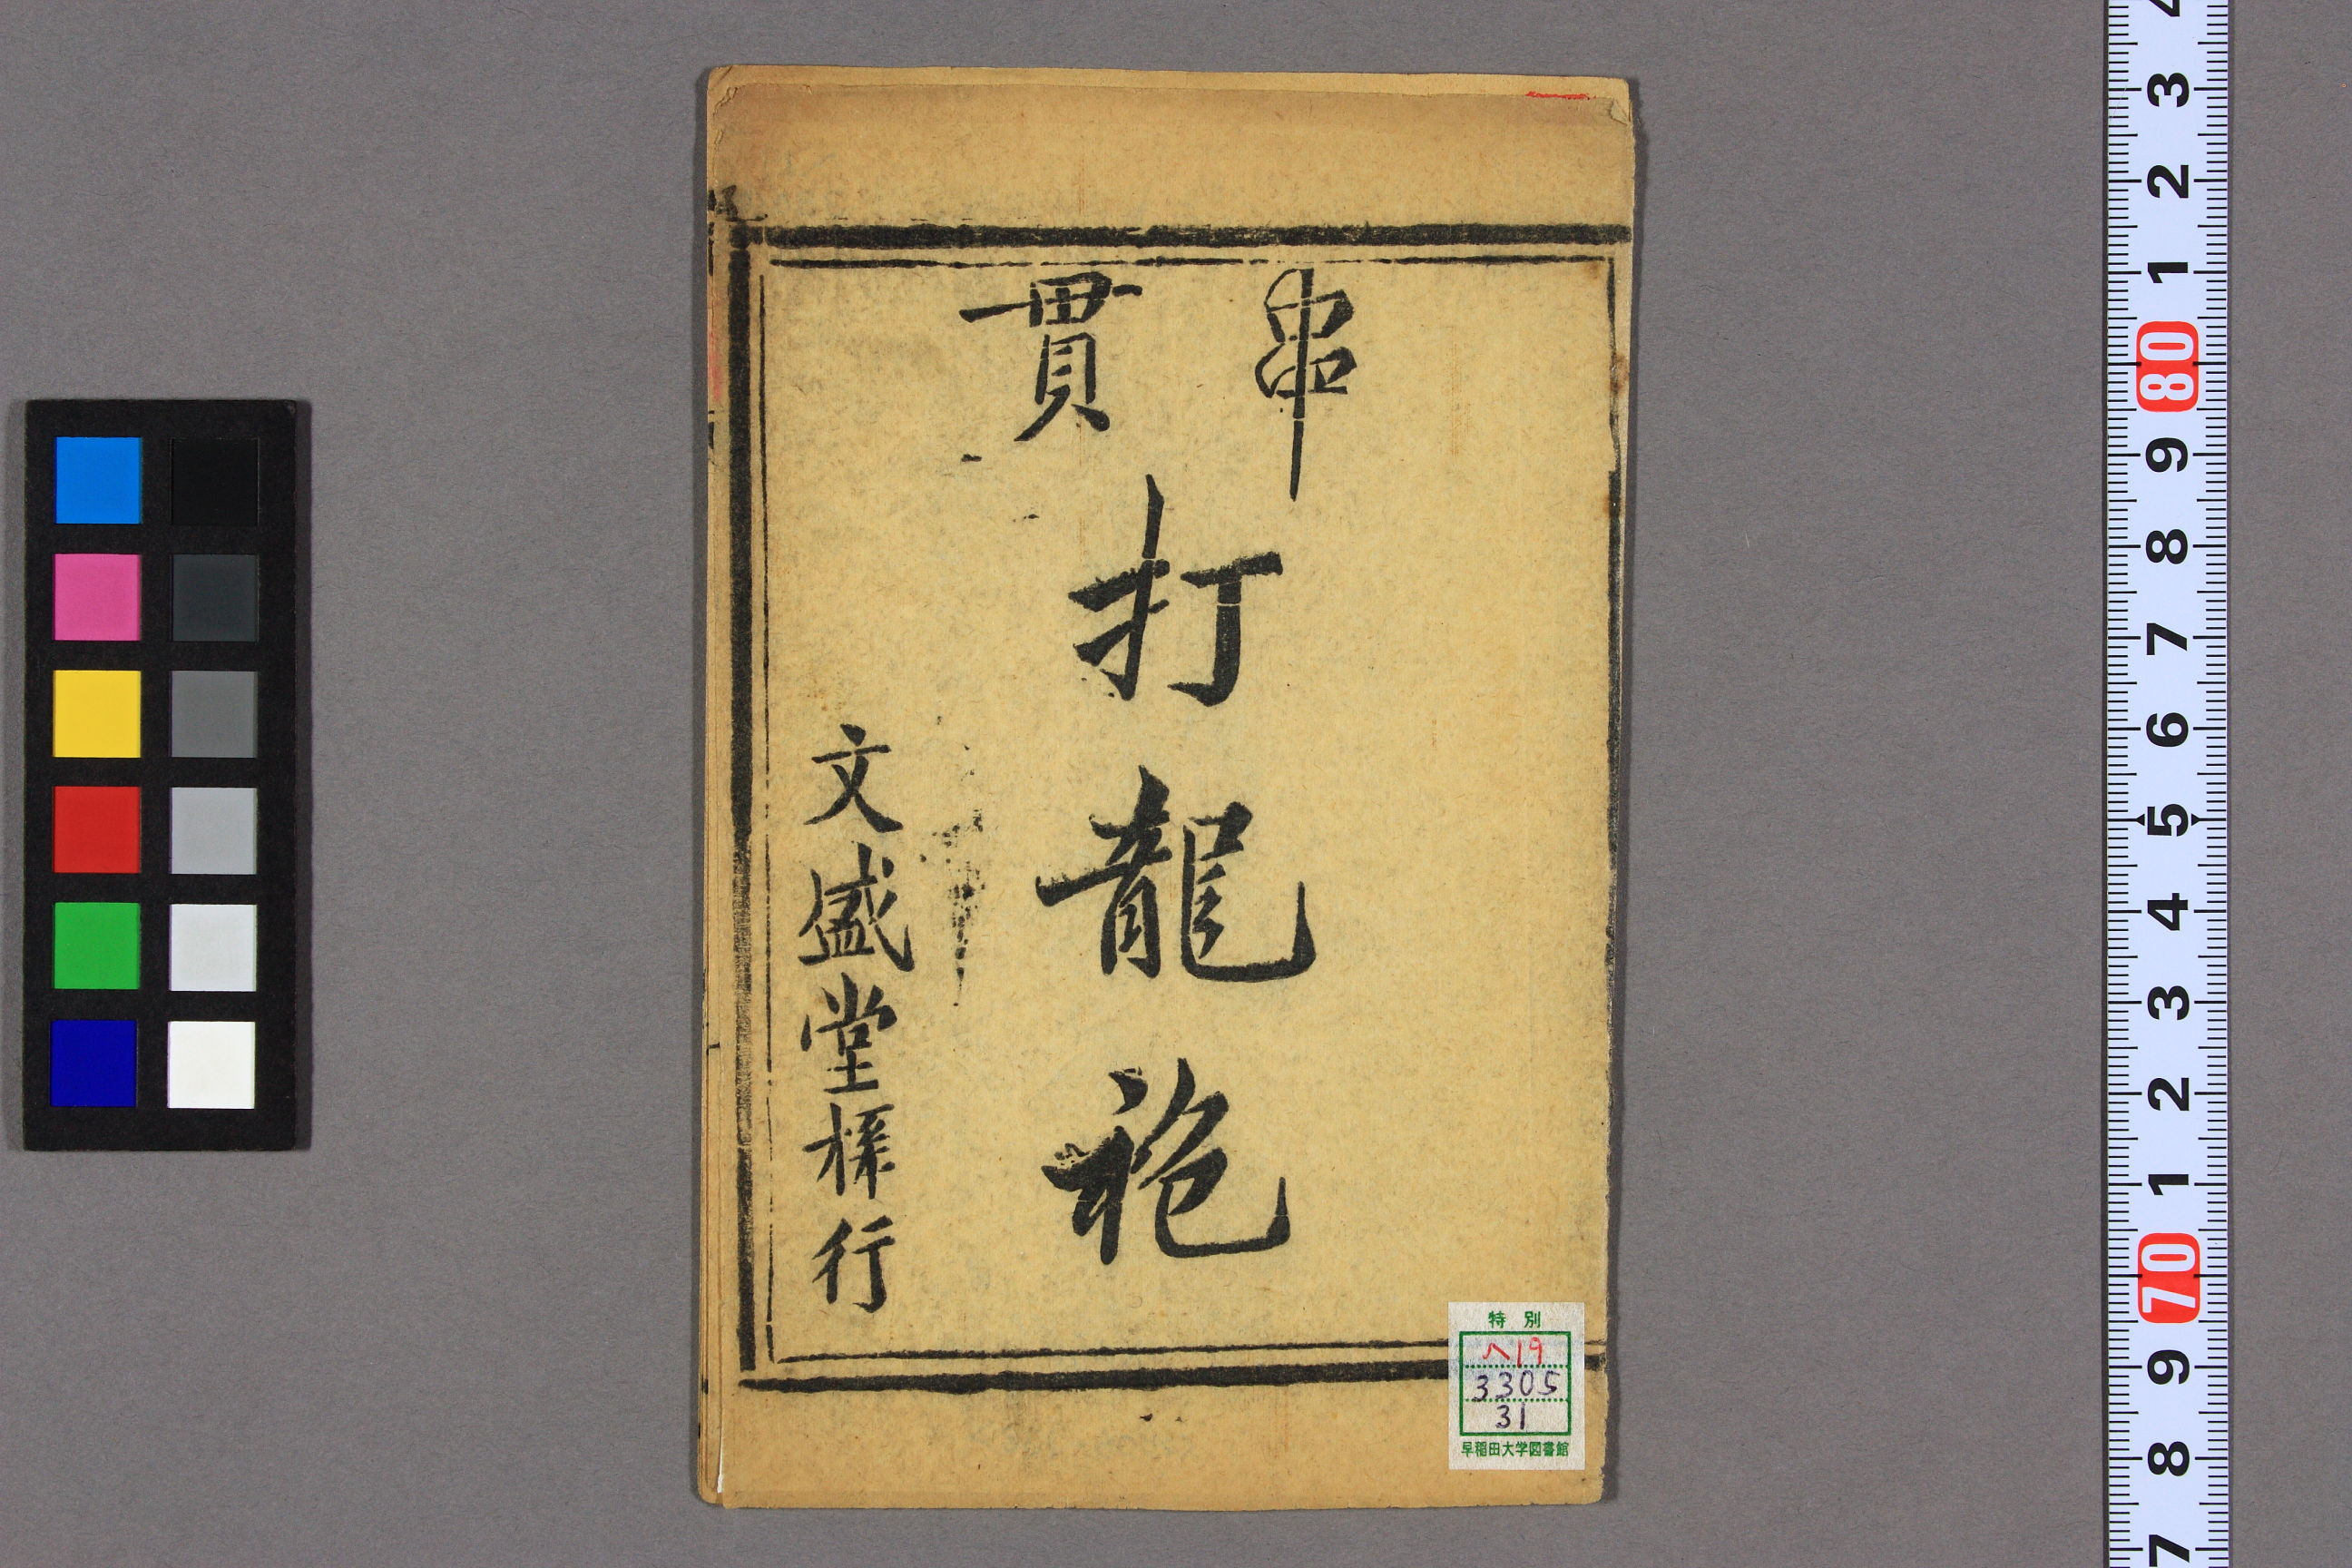 串貫
打龍袍
文盛堂梓行
特別
ヘ19
3305
31
早稲田大学図書館
3
2
1
80
9
8
7
6
5
4
3
2
1
70
9
8
7